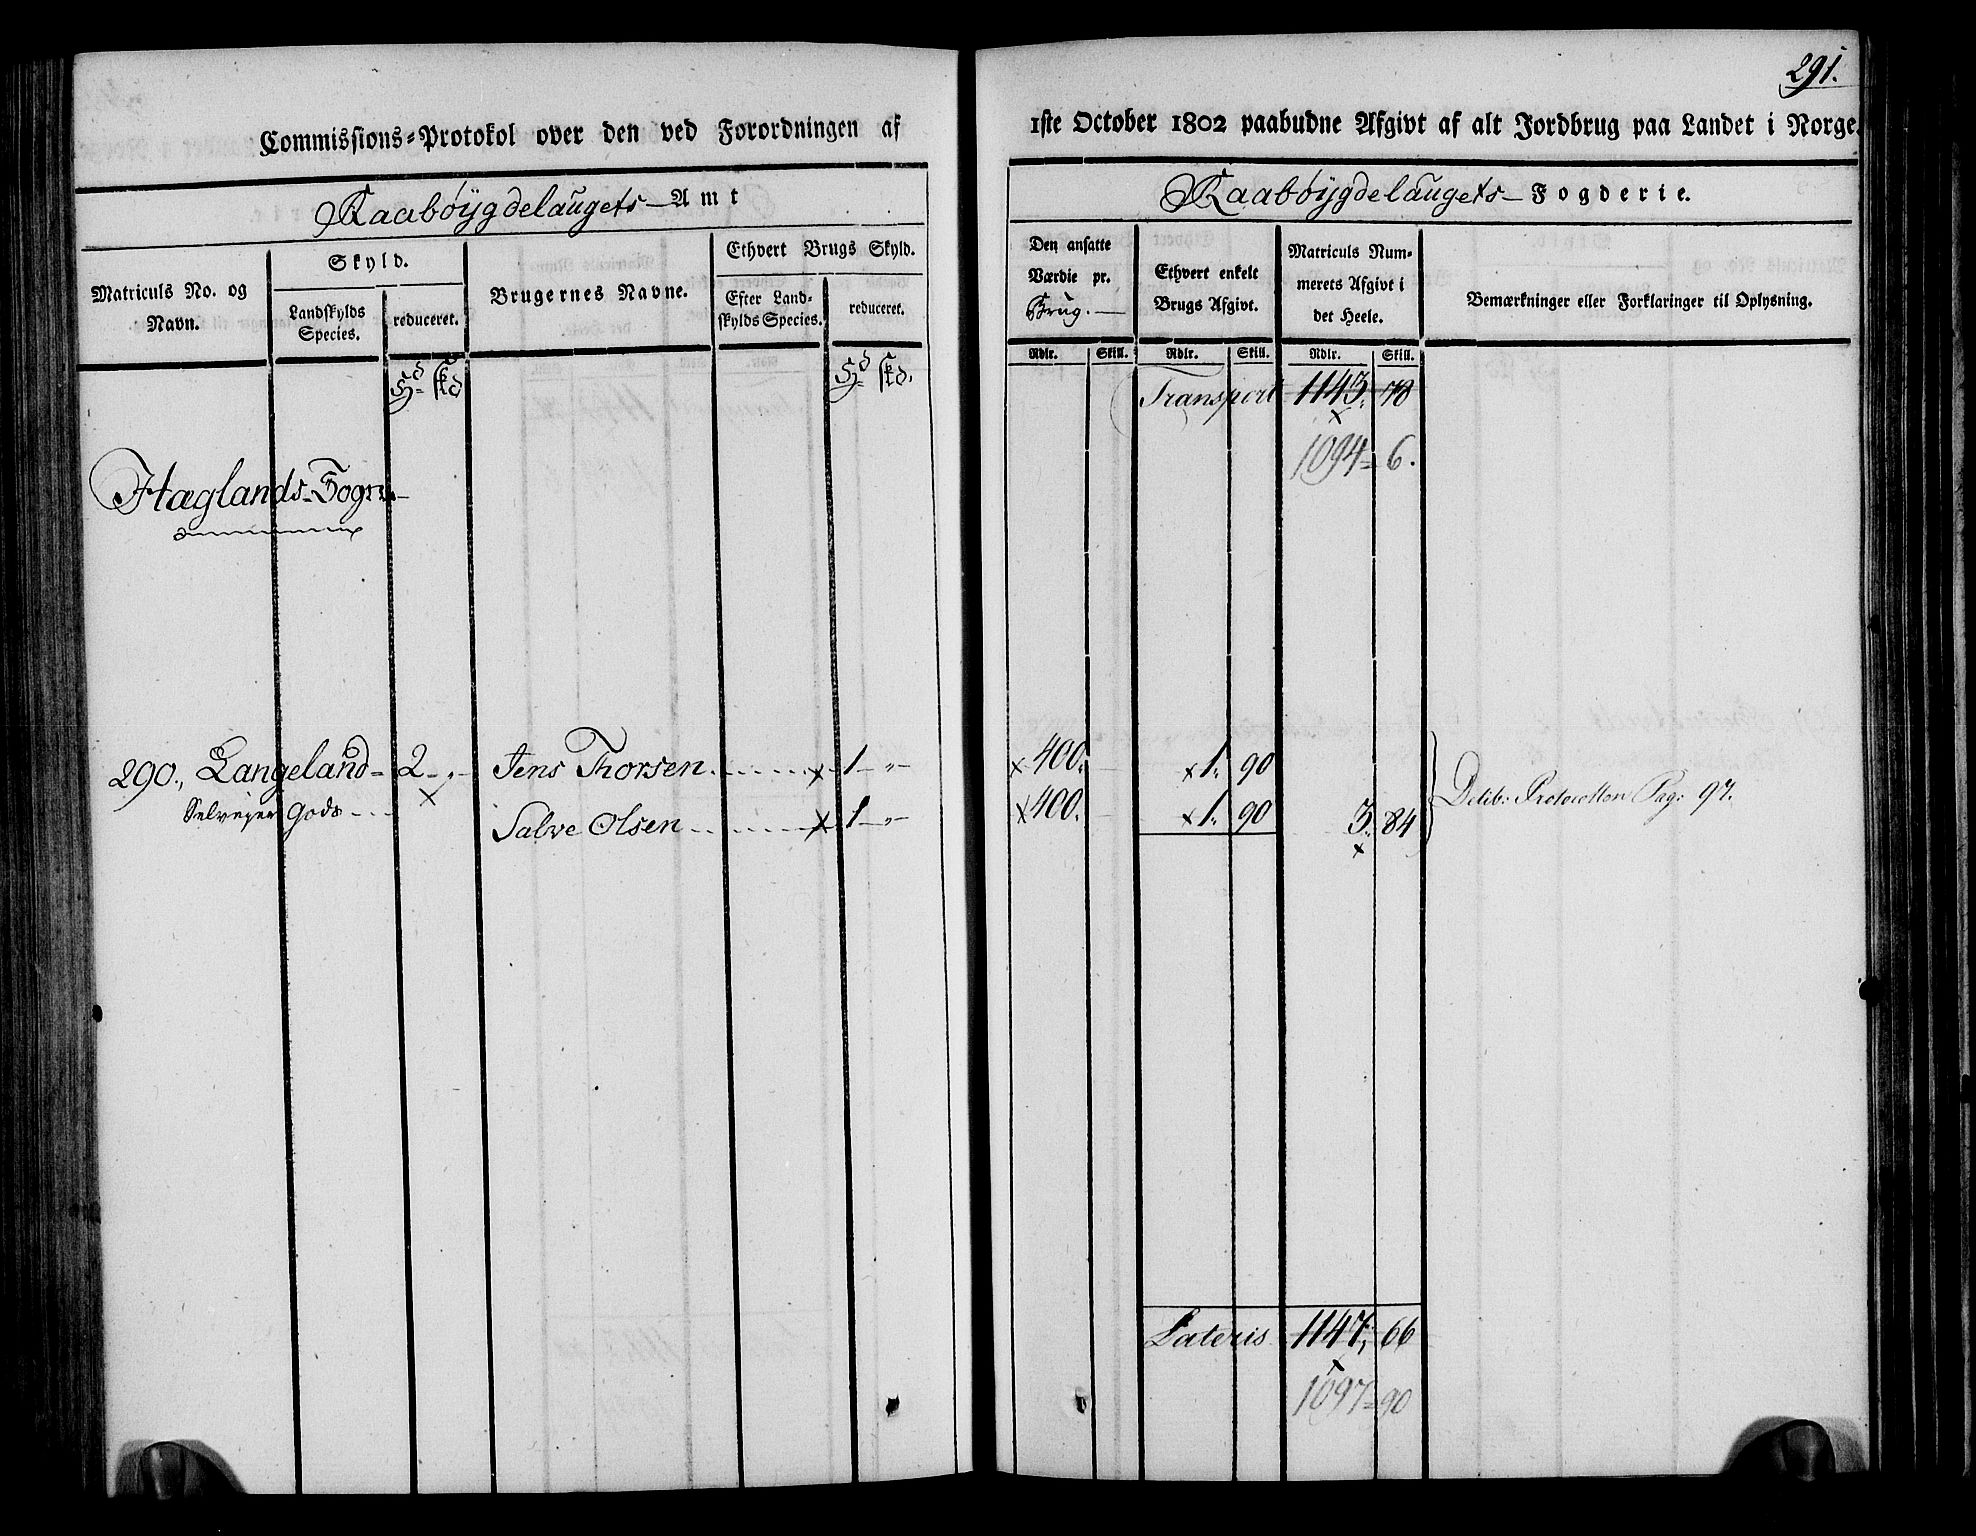 291.
Commissions-Protokol over den ved Forordningen af 1ste October 1802 paabudne Afgivt af alt Jordbrug paa Landet i Norge.
Raabøygdelaugets Amt
Raabøygdelaugets Fogderie.
Matriculs No. og Navn.
Skyld.
Landskylds Species.
reduceret.
Brugernes Navne.
Ethvert Brugs Skyld.
Efter Landskylds Species.
reduceret.
Den ansatte Værdie pr. Brug.
Ethvert enkelt Brugs Afgivt.
Matriculs Nummerets Afgivt i det Heele.
Bemærkninger eller Forklaringer til Oplysning.
Rdlr. Skill. Rdlr. Skill. Rdlr. Skill.
Hd skd Hd skd.
Transport 1143. 78
1094 = 6.
Hæglands Sogn
290., Langeland 2 - „ - Jens Thorsen x 1 - „ - x 400. x 1. 90
Selveyer Gods x Salve Olsen x 1 - „ - x 400. x 1. 90 3. 84 Delib: Protocollen Pag: 97.
x
Lateris 1147, 66
1097 = 90